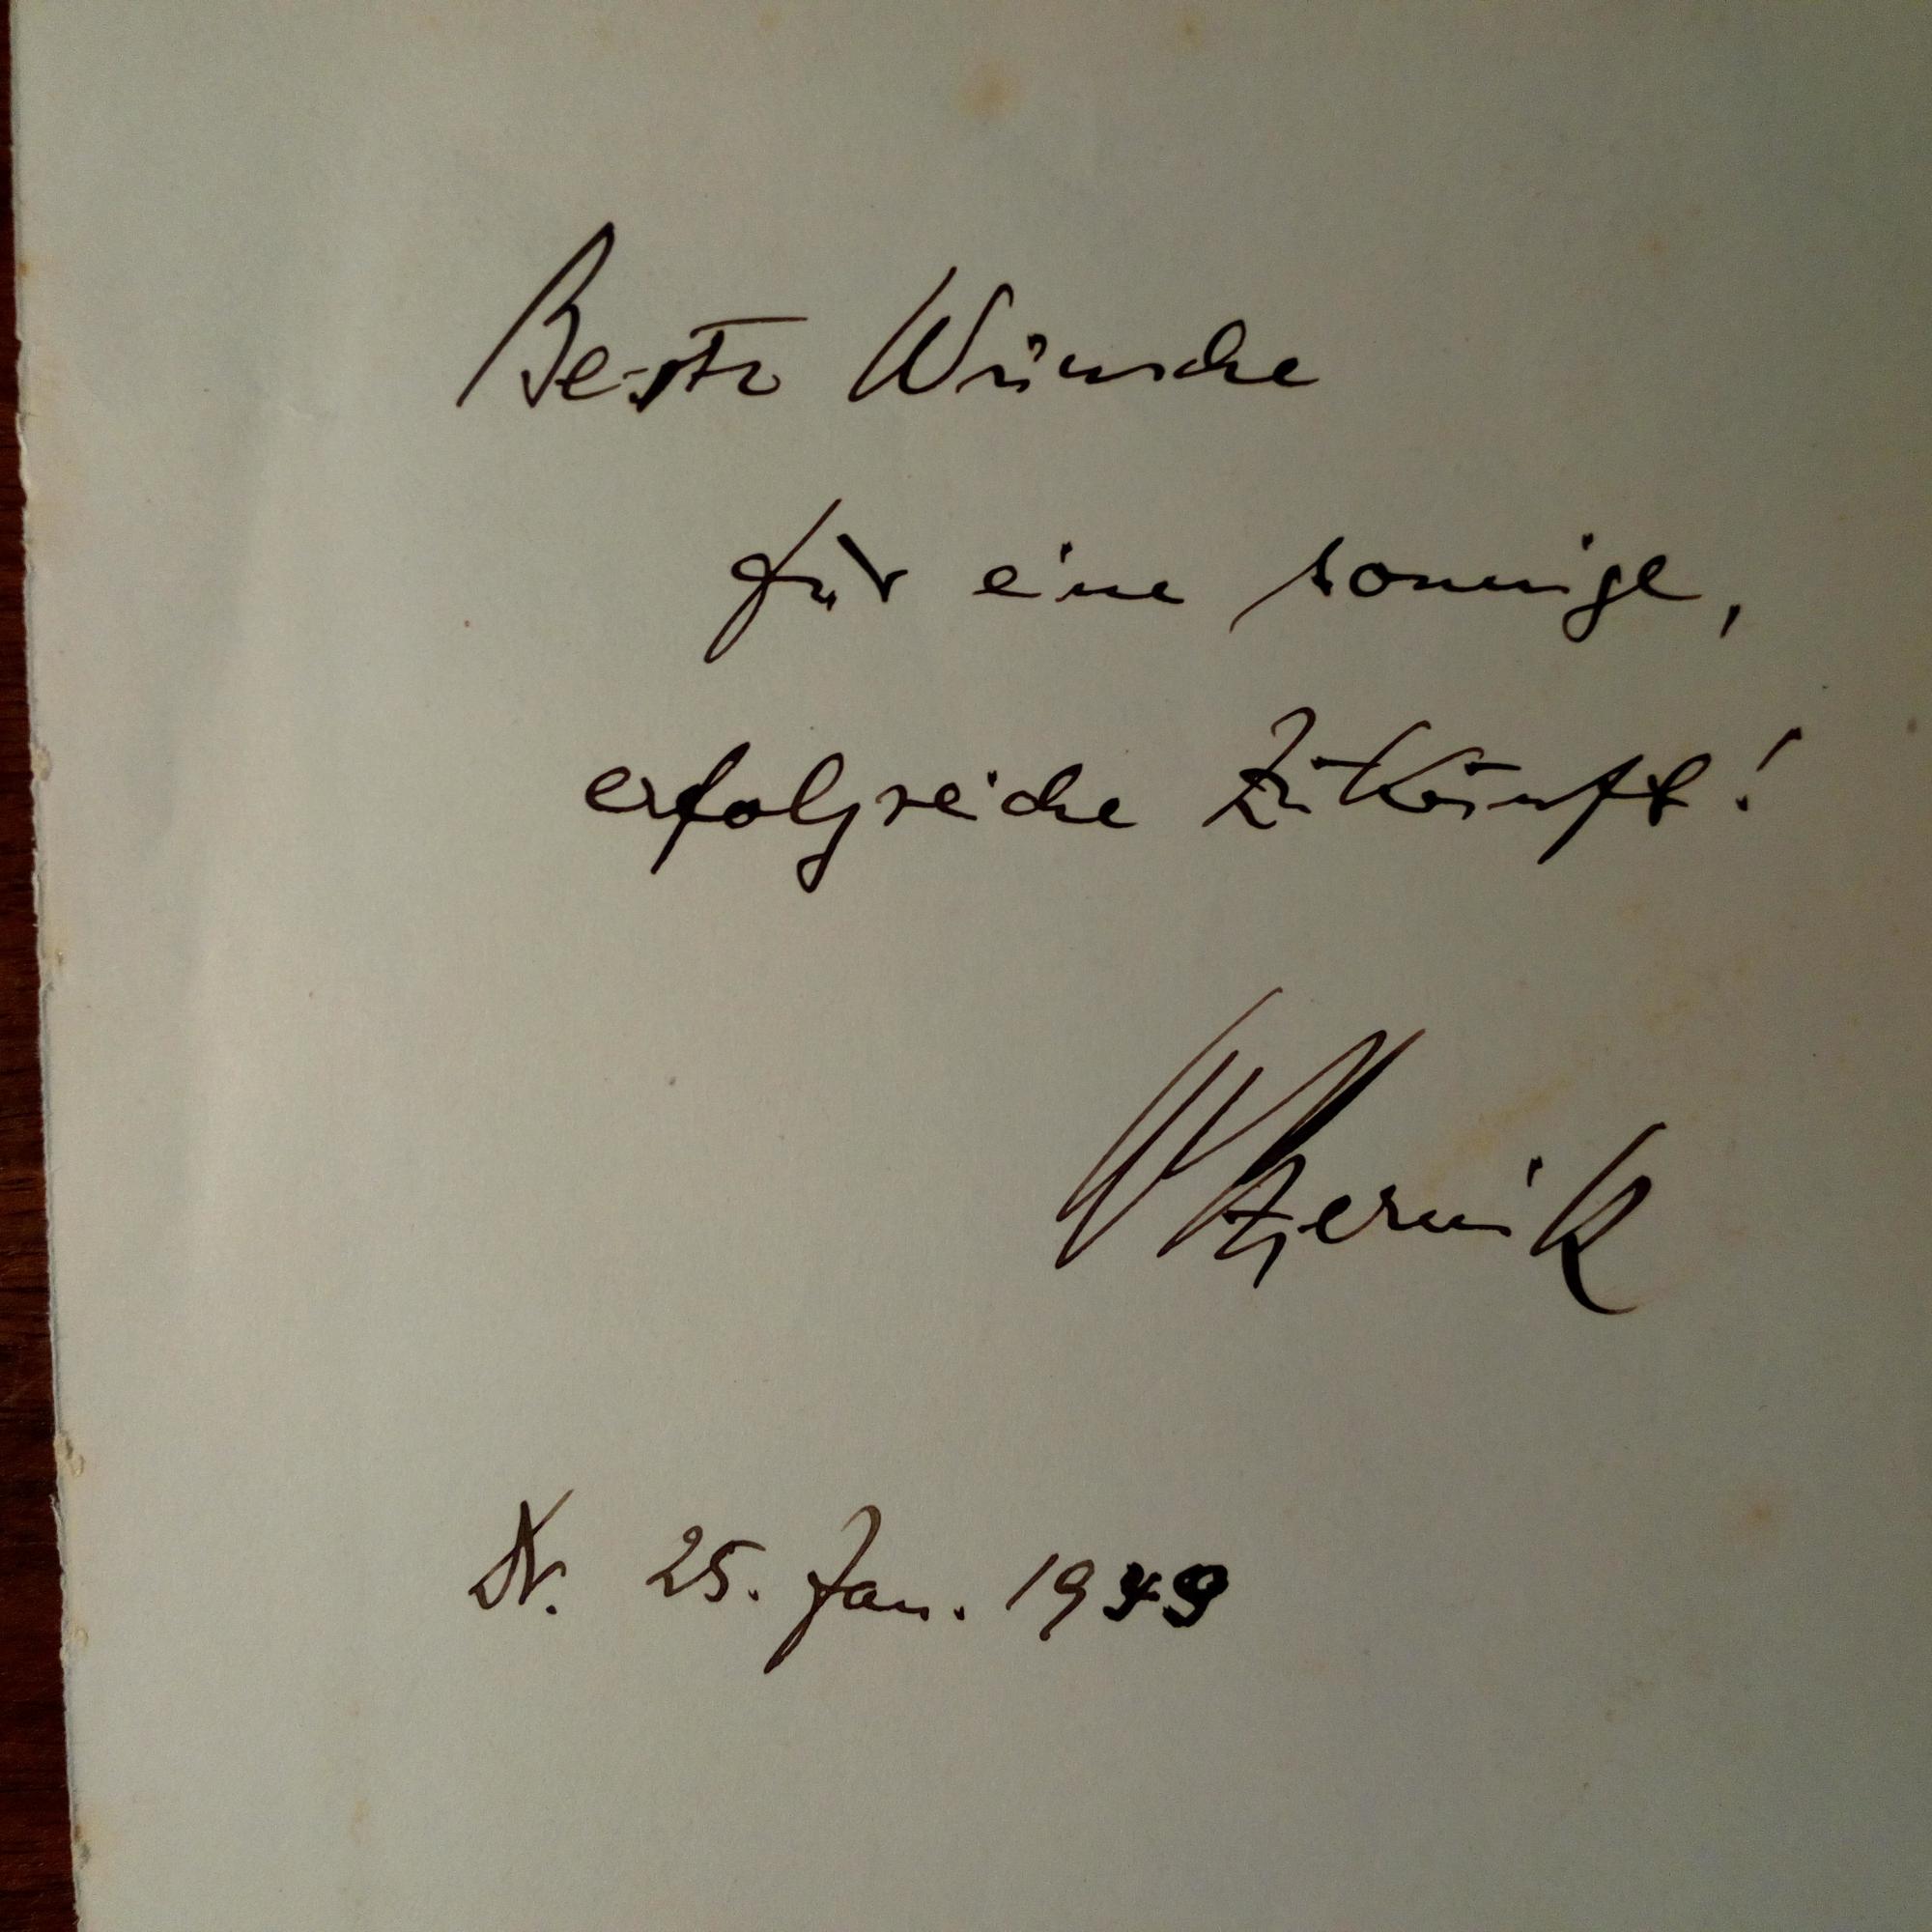 Beste Wünsche
für eine sonnige,
erfolgreiche Zukunft!
25. Jan. 1949